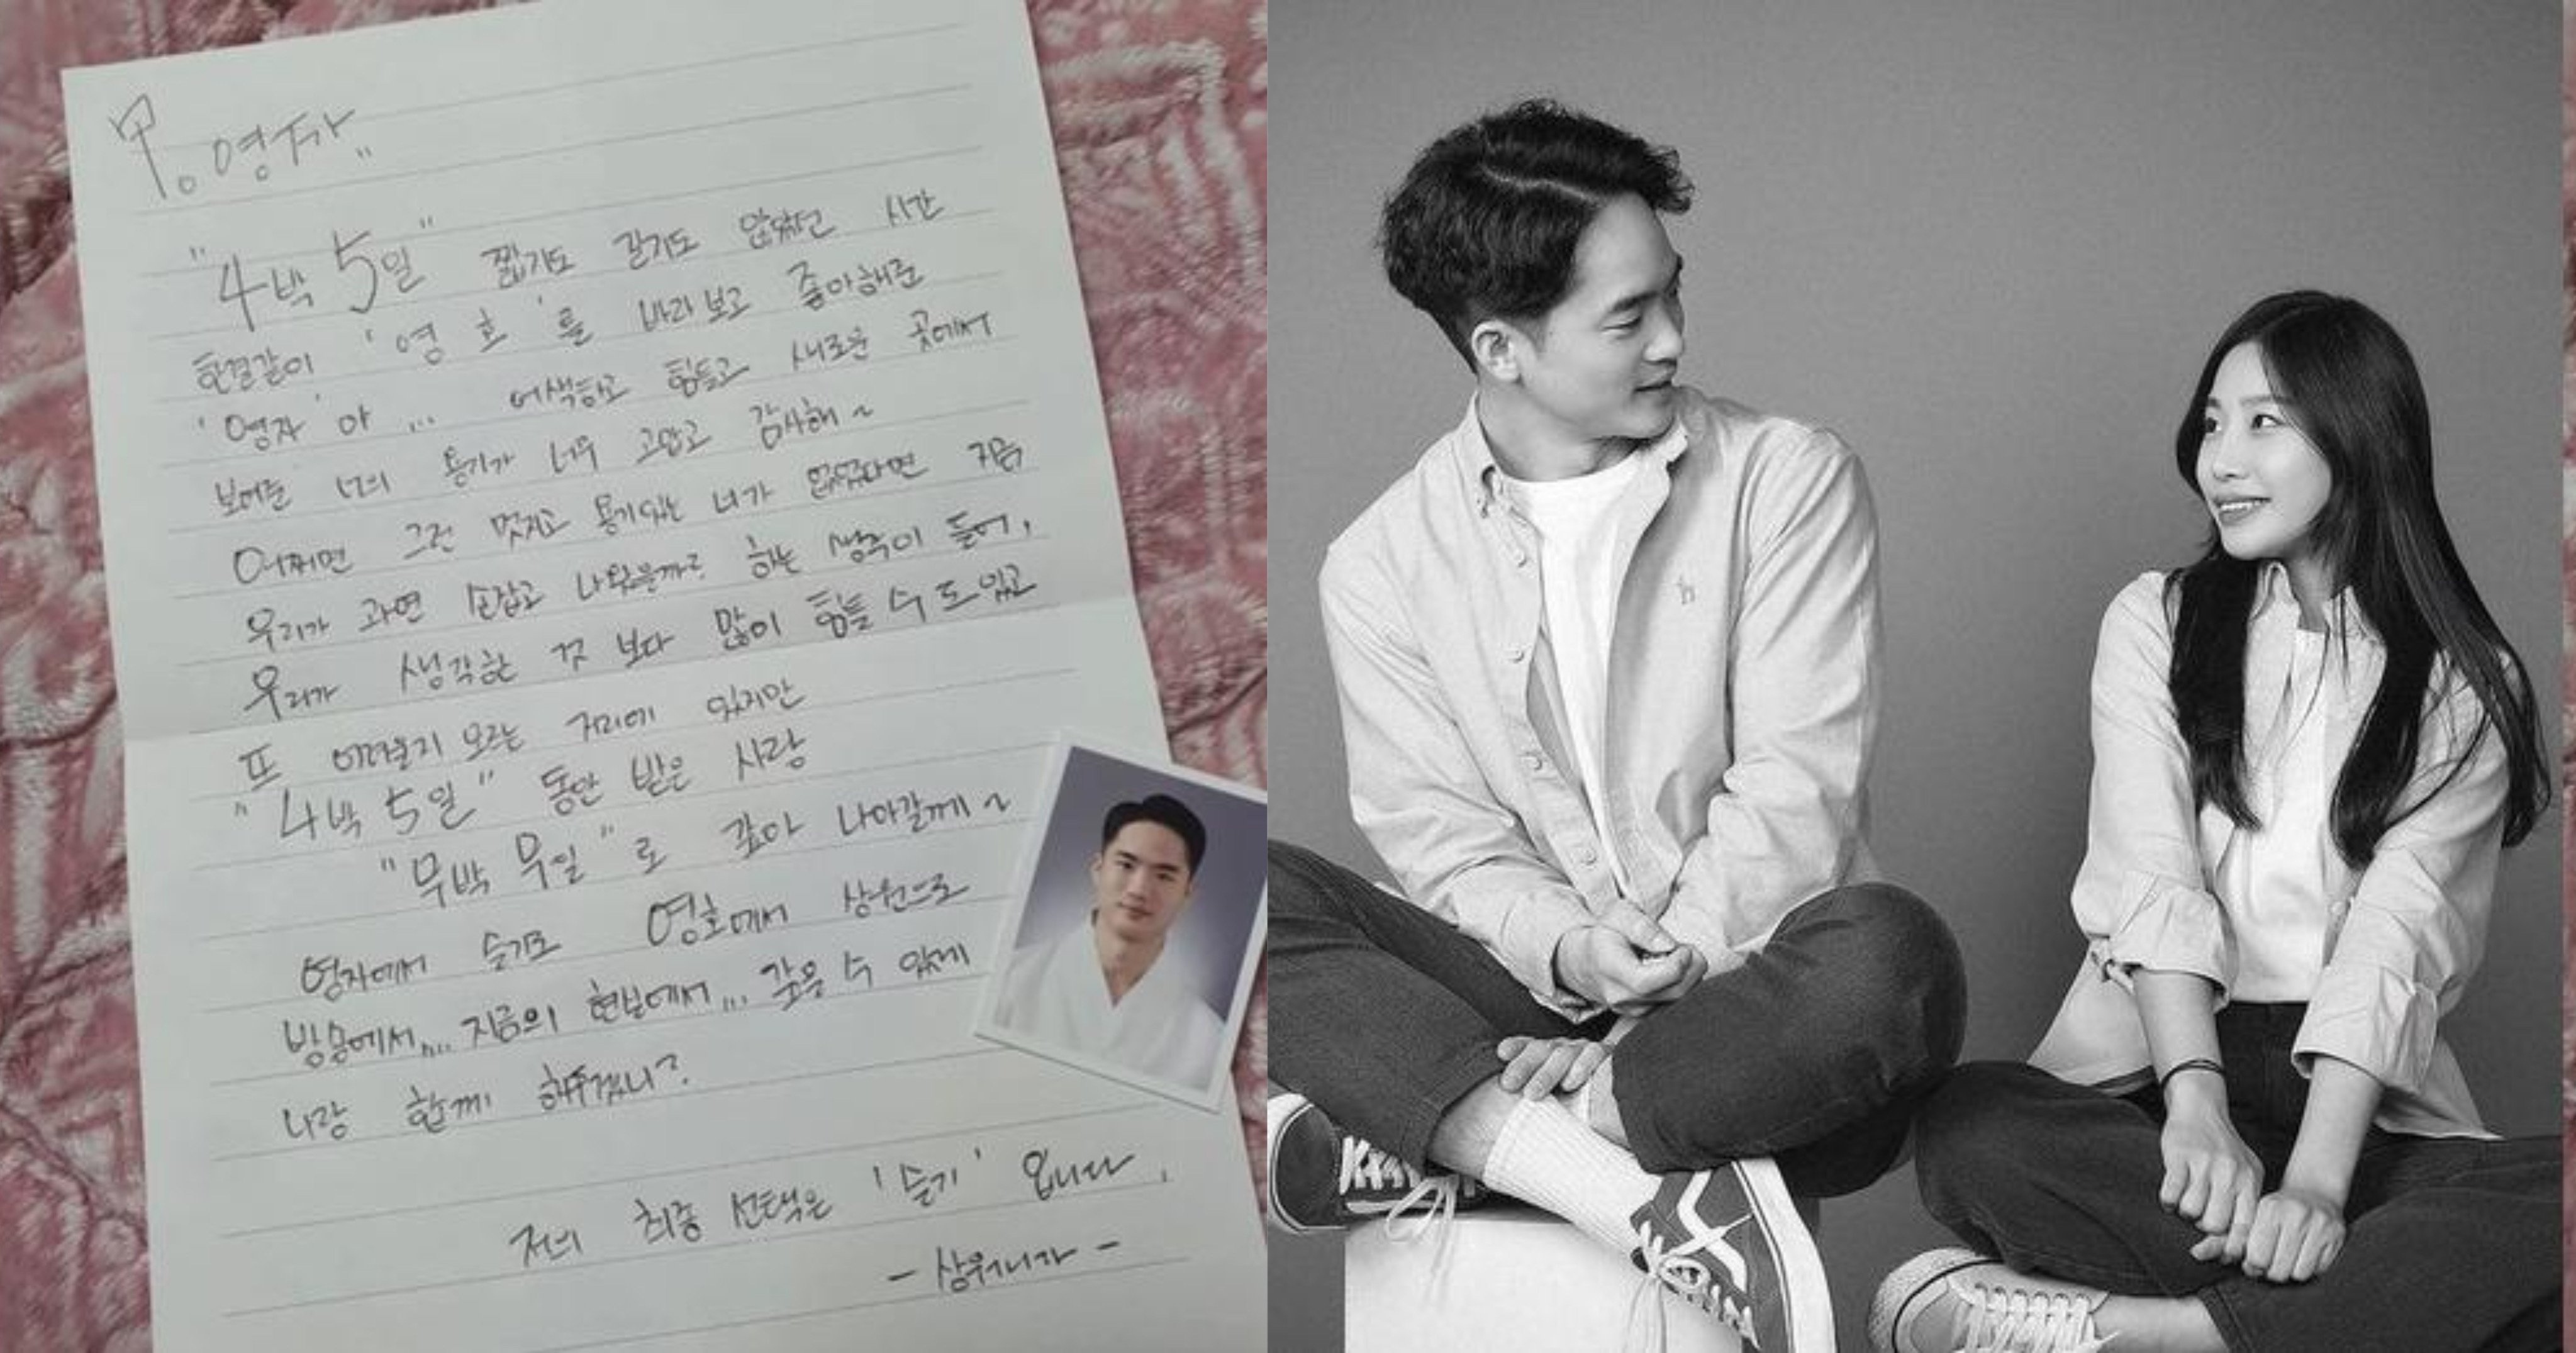 To. 영자..
"4박 5일" 짧기도 길기도 않았던 시간
한결같이 '영호'를 바라보고 좋아해준
'영자'야... 어색하고 힘들고 새로운 곳에서
보여준 너의 용기가 너무 고맙고 감사해~
어쩌면 그런 멋지고 용기있는 너가 없었다면 지금
우리가 과연 손잡고 나왔을까? 하는 생각이 들어,
우리가 생각한 것 보다 많이 힘들 수도 있고
또 어려울지 모르는 거리에 있지만
"4박 5일" 동안 받은 사랑
"무박 무일"로 갚아 나아갈께~
영자에서 슬기로 영호에서 상원으로
방송에서... 지금의 현실에서... 갚을 수 있게
나랑 함께 해주겠니?
저의 최종 선택은 '슬기' 입니다.
- 상워니가 -
h